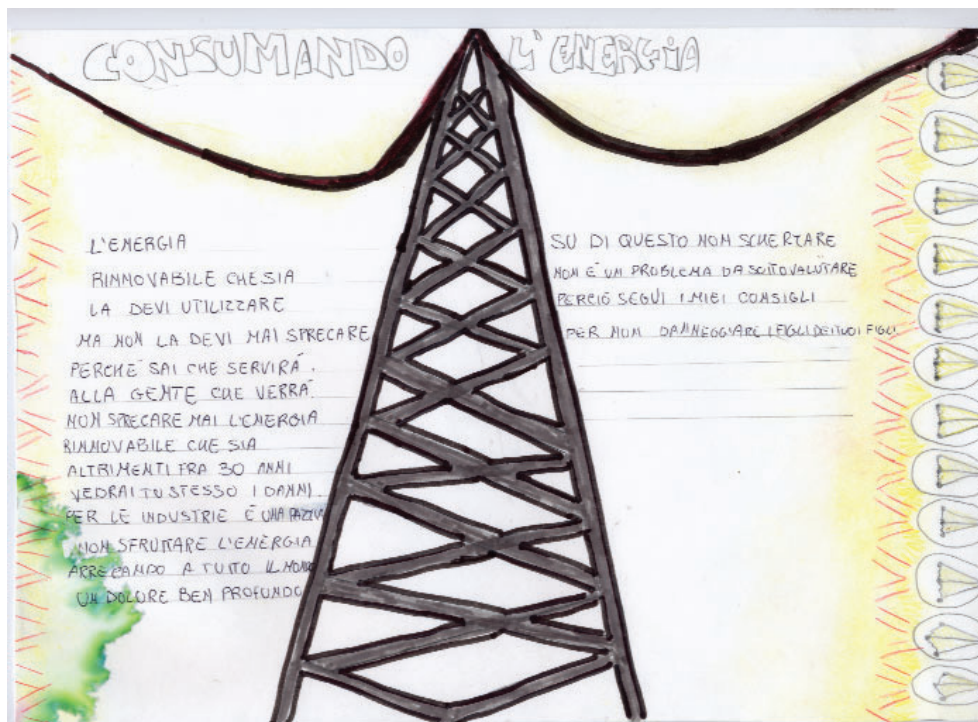 CONSUMANDO L'ENERGIA
L'ENERGIA
RINNOVABILE CHE SIA
LA DEVI UTILIZZARE
MA NON LA DEVI MAI SPRECARE
PERCHÉ SAI CHE SERVIRÁ.
ALLA GENTE CHE VERRÁ
NON SPRECARE MAI L'ENERGIA
RINNOVABILE CHE SIA
ALTRIMENTI FRA 30 ANNI
VEDRAI TU STESSO I DANNI.
PER LE INDUSTRIE É UNA PAZZIA
NON SFRUTTARE L'ENERGIA
ARRECANDO A TUTTO IL MONDO
UN DOLORE BEN PROFONDO
SU DI QUESTO NON SCHERZARE
NON É UN PROBLEMA DA SOTTOVALUTARE
PERCIÓ SEGUI I MIEI CONSIGLI
PER NON DANNEGGIARE I FIGLI DEI TUOI FIGLI